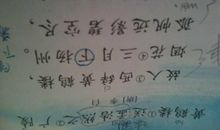 黄鹤楼①送孟浩然之②广陵
李白
故人③西辞黄鹤楼，
烟花④三月下扬州。
孤帆远影碧空尽，